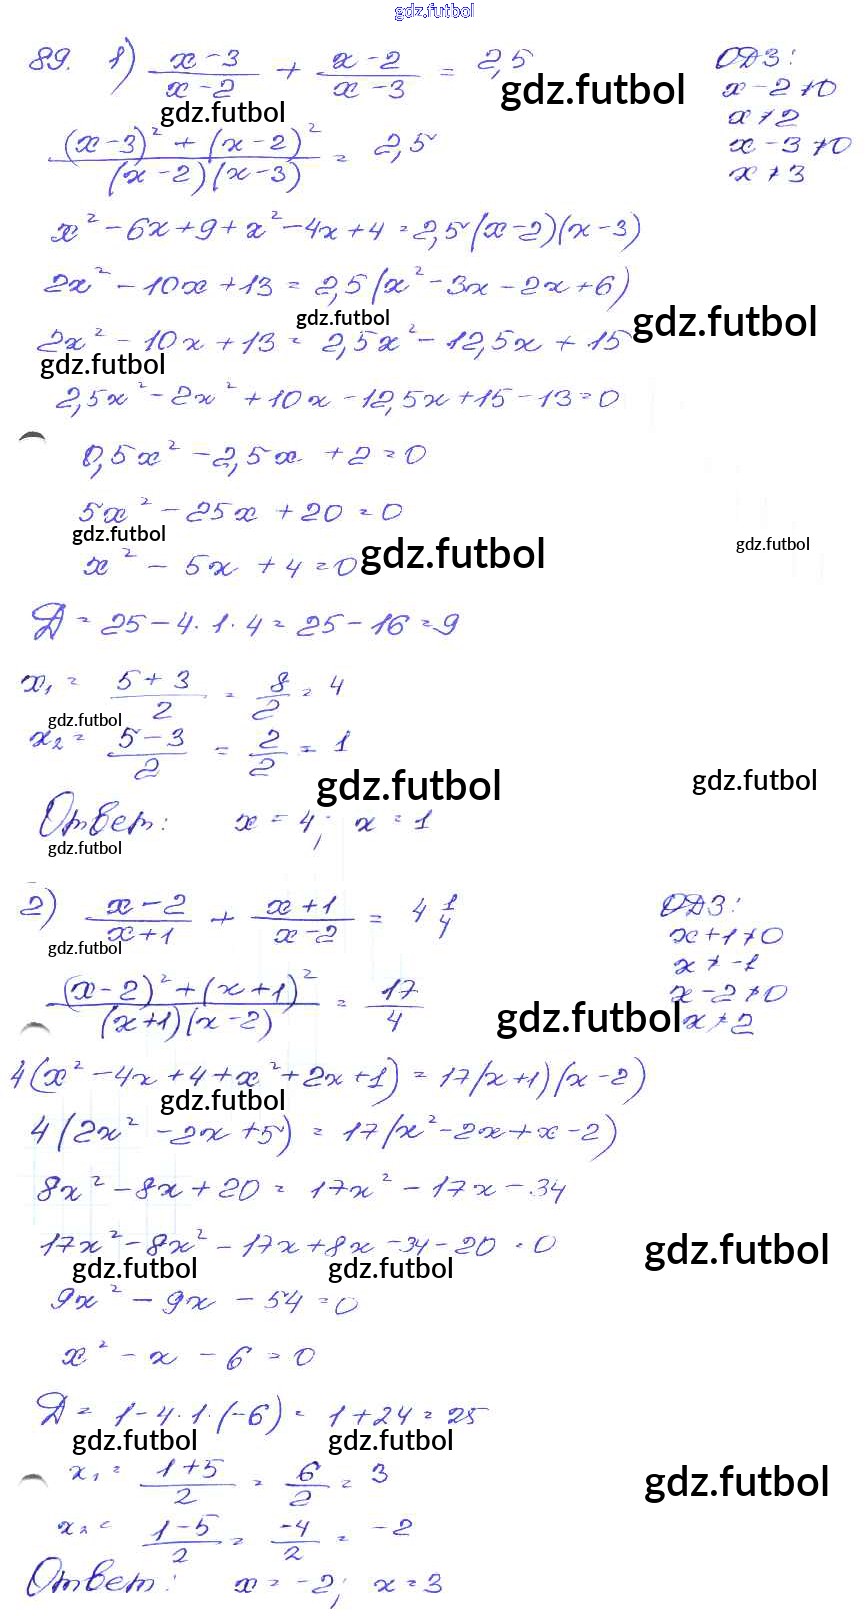 gdz.futbol
89. 1) (x-3)/(x-2) + (x-2)/(x-3) = 2,5
ОДЗ:
x-2≠0
gdz.futbol
gdz.futbol
x≠2
((x-3)²+(x-2)²)/((x-2)(x-3)) = 2,5
x-3≠0
x≠3
x²-6x+9+x²-4x+4=2,5(x-2)(x-3)
2x²-10x+13=2,5(x²-3x-2x+6)
gdz.futbol
gdz.futbol
2x²-10x+13=2,5x²-12,5x+15
gdz.futbol
2,5x²-2x²+10x-12,5x+15-13=0
0,5x²-2,5x+2=0
5x²-25x+20=0
gdz.futbol
gdz.futbol
gdz.futbol
x²-5x+4=0
Д=25-4·1·4=25-16=9
x₁=(5+3)/2=8/2=4
gdz.futbol
x₂=(5-3)/2=2/2=1
gdz.futbol
gdz.futbol
Ответ: x=4; x=1
gdz.futbol
2) (x-2)/(x+1) + (x+1)/(x-2) = 4 1/4
ОДЗ:
x+1≠0
gdz.futbol
x≠-1
((x-2)²+(x+1)²)/((x+1)(x-2)) = 17/4
x-2≠0
gdz.futbol
x≠2
4(x²-4x+4+x²+2x+1)=17(x+1)(x-2)
gdz.futbol
4(2x²-2x+5)=17(x²-2x+x-2)
8x²-8x+20=17x²-17x-34
17x²-8x²-17x+8x-34-20=0
gdz.futbol
gdz.futbol
gdz.futbol
9x²-9x-54=0
x²-x-6=0
Д=1-4·1·(-6)=1+24=25
gdz.futbol
gdz.futbol
x₁=(1+5)/2=6/2=3
gdz.futbol
x₂=(1-5)/2=-4/2=-2
Ответ: x=-2; x=3